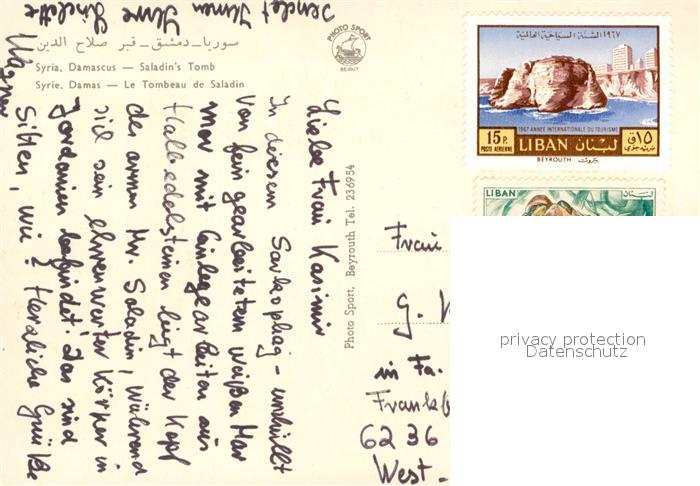 سوريا - دمشق - قبر صلاح الدين
Syria, Damascus — Saladin's Tomb
Syrie, Damas — Le Tombeau de Saladin
PHOTO SPORT
BEIRUT
Photo Sport, Beyrouth Tel. 236954
Liebe Frau Kasimir
In diesem Sarkophag - umhüllt
von fein gearbeitetem weißen Mar
mor mit Einlegearbeiten aus
Halbedelsteinen liegt der Kopf
des armen Mr. Saladin, während
sich sein ehrenwerter Körper in
Jordanien befindet. Das sind
Sitten, wie? Herzliche Grüße
sendet Ihnen Ihre
١٩٦٧ السنة السياحية العالمية
1967 ANNEE INTERNATIONALE DU TOURISME
15 P.
POSTE AERIENNE
LIBAN لبنان
١٥ ق
بريد جوي
BEYROUTH بيروت
LIBAN لبنان
Frau
G.
in Fa.
6236
West-
privacy protection
Datenschutz